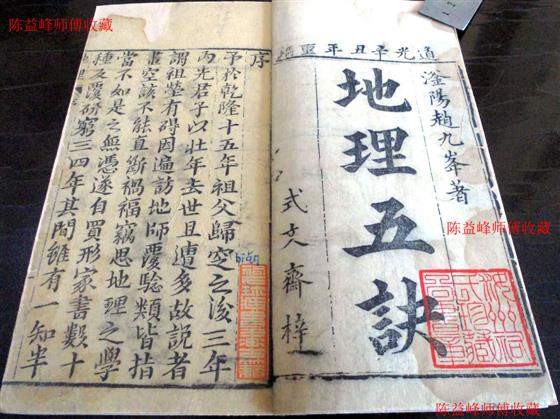 陈益峰師傅收藏
陈益峰師傅收藏
道光辛丑年重鐫
滏陽趙九峯著
地理五訣
式文齋梓
序
予於乾隆十五年祖父歸空之後三年
丙先君子以壮年去世且遭多故説者
謂祖塋有碍因遍訪地師覆驗類皆指
畫空談不能直斷禍福竊思地理之學
當不如是之無憑遂自買形家書數十
種反覆研窮三四年其間雖有一知半
陈益峰師傅收藏
陈益峰師傅收藏